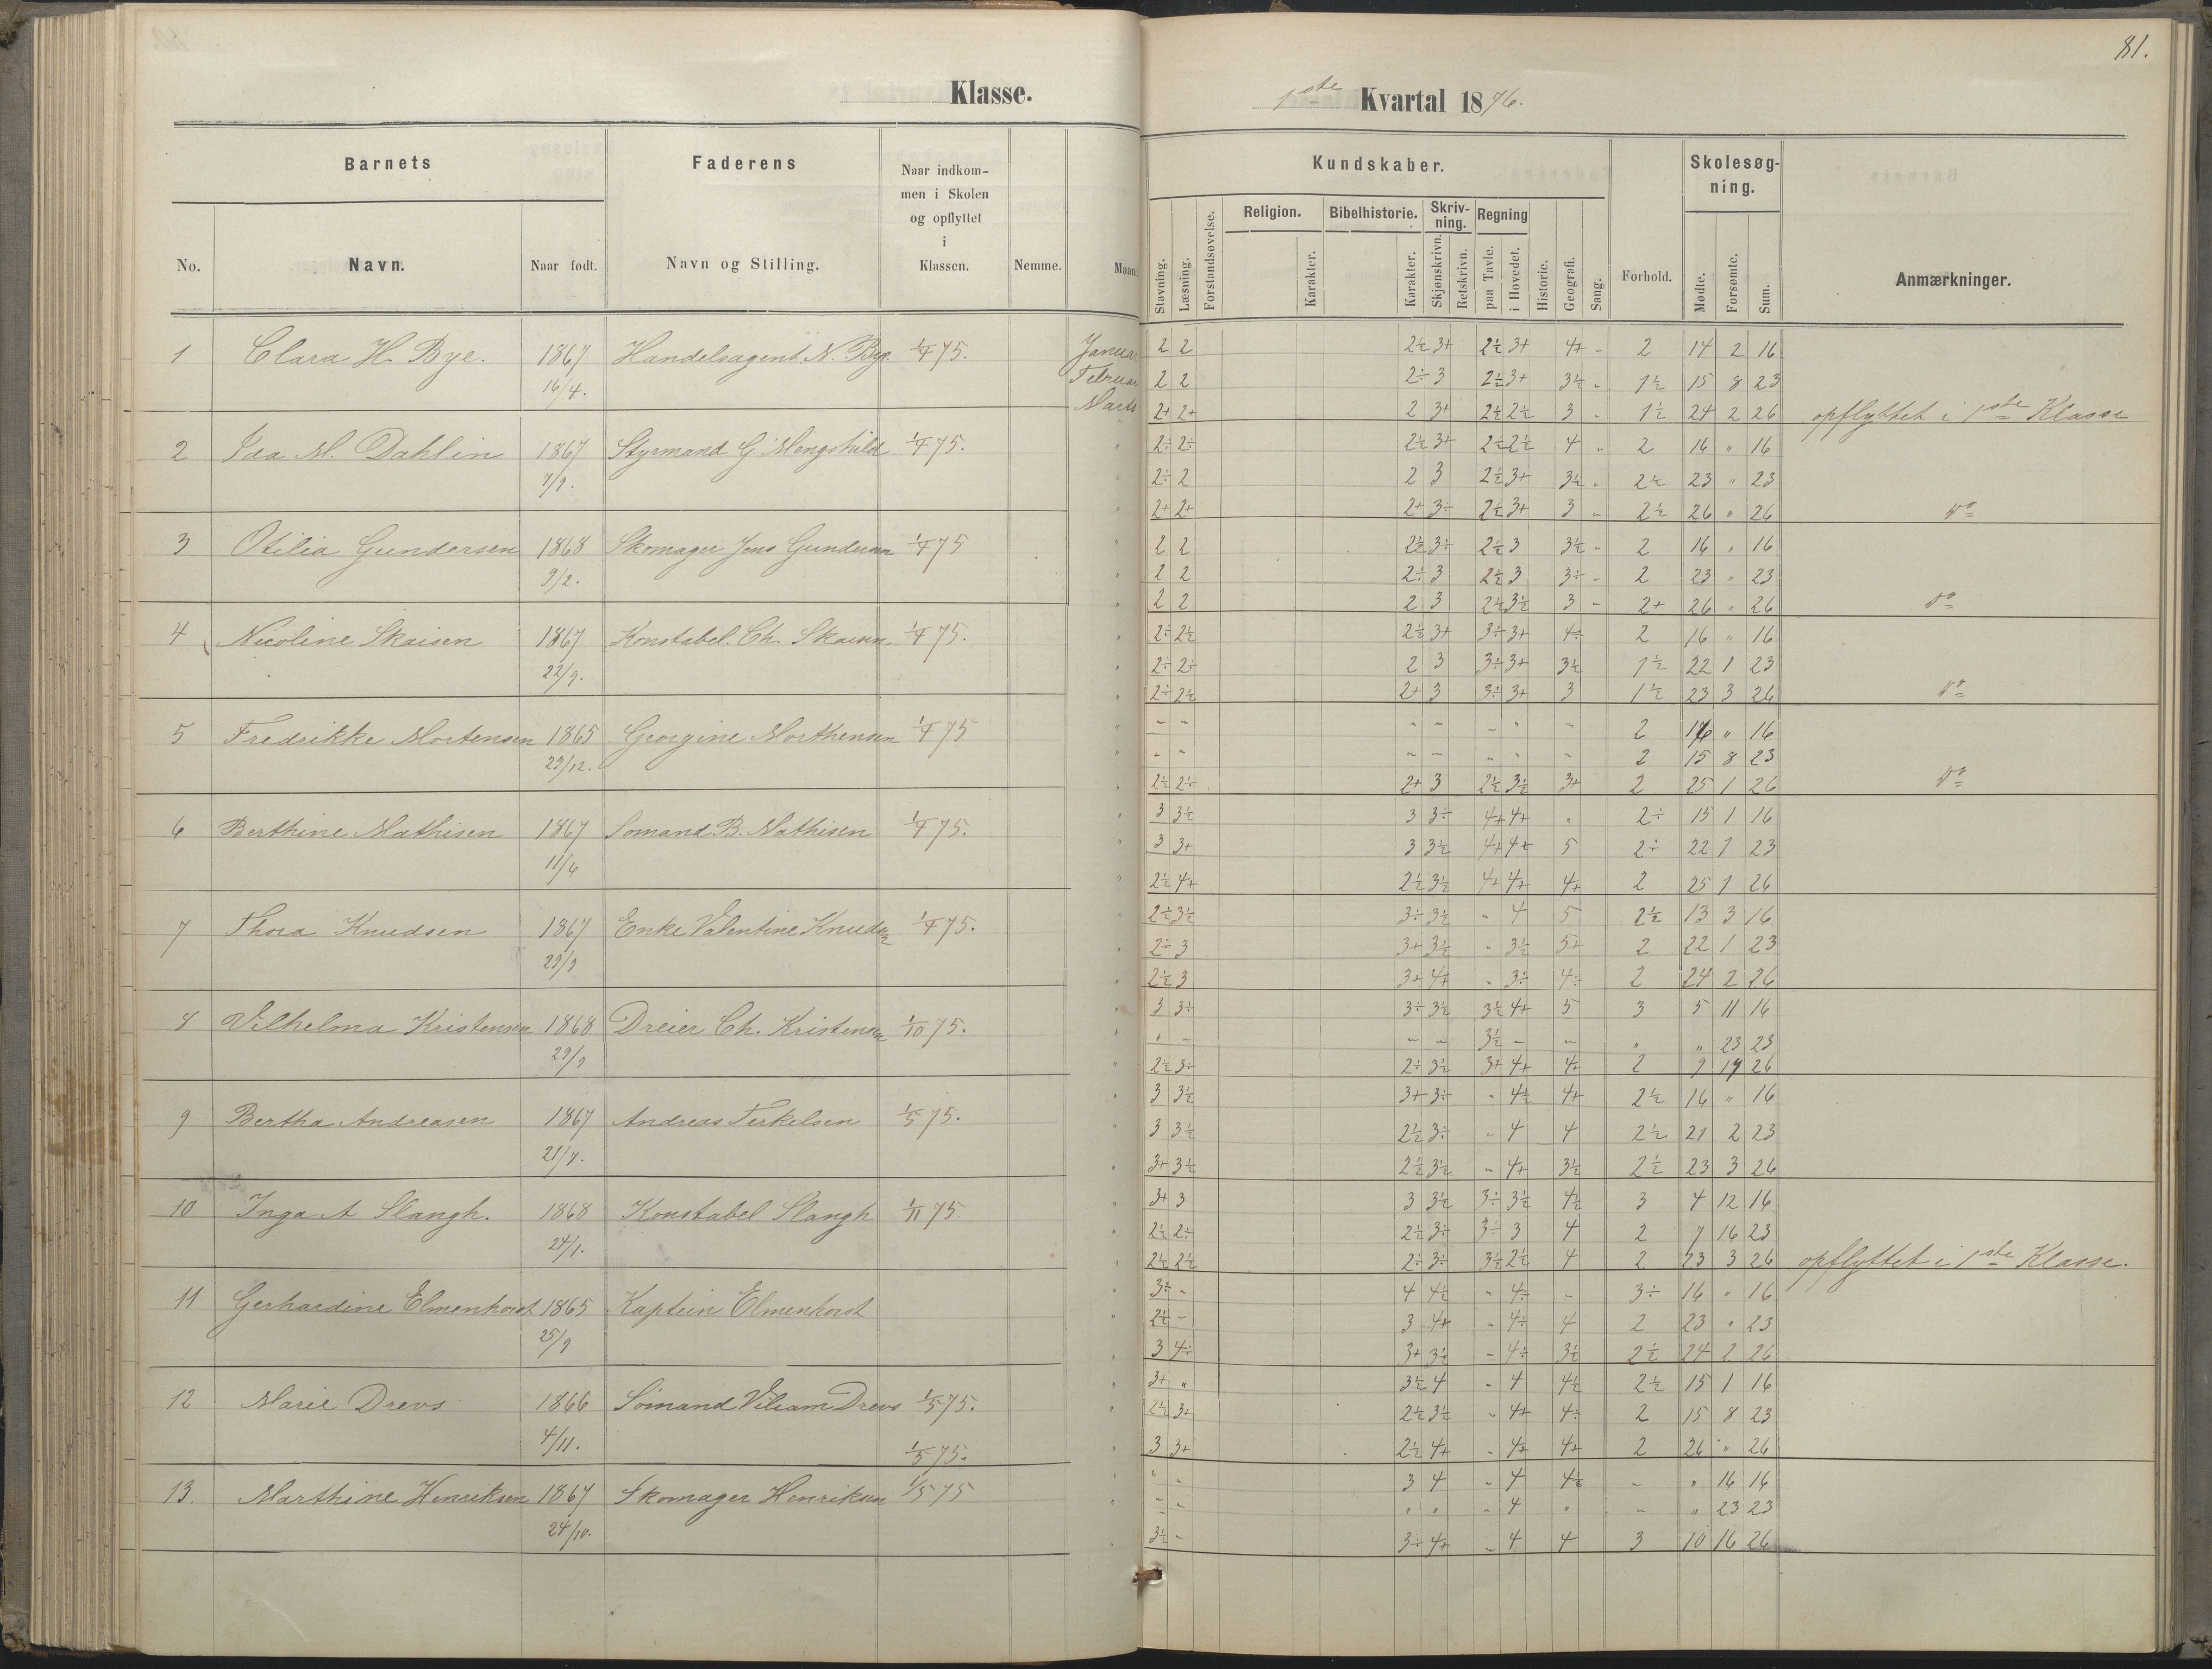 Klasse.
Barnets
Faderens
Naar indkom-
men i Skolen
og opflyttet
i
Klassen.
No.
Navn.
Naar født.
Navn og Stilling.
Nemme.
1 Clara H. Bye. 1867 Handelsagent N. Bye 1/4 75. Januar
16/4. Februar
Marts
2 Ida M. Dahlin 1867 Styrmand G. 1/4 75.
7/9.
3 Otilia Gundersen 1868 Skomager Jens Gundersen 1/4 75
9/2.
4 Nicoline Skaisen 1867 Konstabel Ch. Skaisen 1/4 75.
22/9.
5 Fredrikke Mortensen 1865 Georgine Morthensen 1/4 75
29/12.
6 Berthine Mathisen 1867 Sømand B. Mathisen 1/4 75.
11/6
7 Thora Knudsen 1867 Enke Valentine Knudsen 1/4 75.
29/9
8 Vilhelma Kristensen 1868 Dreier Ch. Kristensen 1/10 75.
29/9
9 Bertha Andreasen 1867 Andreas Terkelsen 1/5 75.
21/7.
10 Inga A Slangh. 1868 Konstabel Slangh 1/11 75.
24/1.
11 Gerhardine Elmenhorst 1865 Kaptein Elmenhorst
25/9
12 Marie Drevs 1866 Sømand Viliam Drevs 1/5 75.
4/11. 1/5 75.
13. Marthine Henriksen 1867 Skomager Henriksen 1/5 75
24/10.
81.
1ste Kvartal 1876.
Kundskaber.
Skolesøg-
ning.
Religion.
Bibelhistorie.
Skriv-
ning.
Regning
Stavning.
Læsning.
Forstandsøvelse.
Karakter.
Karakter.
Skjønskrivn.
Retskrivn.
paa Tavle.
i Hovedet.
Historie.
Geografi.
Sang.
Forhold.
Mødte.
Forsømte.
Sum.
Anmærkninger.
2 2 2½ 3+ 2½ 3+ 4+ - 2 14 2 16
2 2 2÷ 3 2½ 3+ 3½ " 1½ 15 8 23
2+ 2+ 2 3+ 2½ 2½ 3 - 1½ 24 2 26 opflyttet i 1ste Klasse
2÷ 2÷ 2½ 3+ 2½ 2½ 4 " 2 16 " 16
2÷ 2 2 3 2½ 3+ 3½ " 2½ 23 " 23
2+ 2+ 2+ 3÷ 2½ 3+ 3 " 2½ 26 " 26 Do
2 2 2½ 3÷ 2½ 3 3½ - 2 16 " 16
2 2 2÷ 3 2½ 3 3÷ - 2 23 " 23
2 2 2 3 2½ 3½ 3 - 2+ 26 " 26 Do
2÷ 2½ 2½ 3+ 3÷ 3+ 4÷ 2 16 " 16
2÷ 2÷ 2 3 3÷ 3+ 3½ 1½ 22 1 23
2÷ 2½ 2+ 3 3÷ 3+ 3 1½ 23 3 26 Do
" " " " " " " 2 16 " 16
" " " " " " " 2 15 8 23
2½ 2÷ 2+ 3 2½ 3½ 3+ 2 25 1 26 Do
3 3½ 3 3÷ 4+ 4+ " 2÷ 15 1 16
3 3+ 3 3½ 4+ 4+ 5 2÷ 22 1 23
2½ 4+ 2½ 3½ 4+ 4+ 4+ 2 25 1 26
2½ 3½ 3÷ 3½ " 4 5 2½ 13 3 16
2÷ 3 3+ 3½ " 3½ 5+ 2 22 1 23
2½ 3 3+ 4+ " 3÷ 4÷ 2 24 2 26
3 3÷ 3÷ 3½ 3½ 4+ 5 3 5 11 16
" " " " 3½ " " " " 23 23
2½ 3÷ 2÷ 3½ 3+ 4+ 4+ 2 9 17 26
3 3½ 3+ 3÷ " 4½ 4+ 2½ 16 " 16
3 3½ 2½ 3÷ " 4 4 2½ 21 2 23
3+ 3½ 2½ 3½ " 4+ 3½ 2½ 23 3 26
3+ 3 3 3½ 3÷ 3½ 4½ 3 4 12 16
2½ 2÷ 2½ 3÷ 3÷ 3 4 2 7 16 23
2½ 2½ 2÷ 3÷ 3½ 2½ 4 2 23 3 26 opflyttet i 1ste Klasse.
3÷ " 4 4½ " 4÷ " 3÷ 16 " 16
2½ - 3 4+ " 4÷ 4 2 23 " 23
3 4÷ 3+ 3½ " 4÷ 3½ 2½ 24 2 26
3+ " 3½ 4 " 4 4½ 2½ 15 1 16
2½ 3+ 2½ 3½ " 4+ 4÷ 2 15 8 23
3 3+ 2½ 4+ " 4+ 4+ 2 26 " 26
" " 3 4 " 4 4½ " " 16 16
" " " " " 4 " " " 23 23
3½ - 3÷ 4+ " 4 4 3 10 16 26